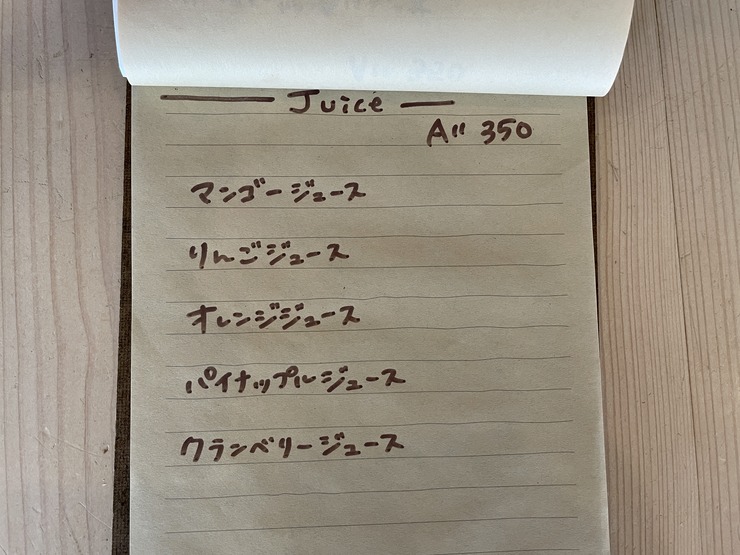 Juice
All 350
マンゴージュース
りんごジュース
オレンジジュース
パイナップルジュース
クランベリージュース